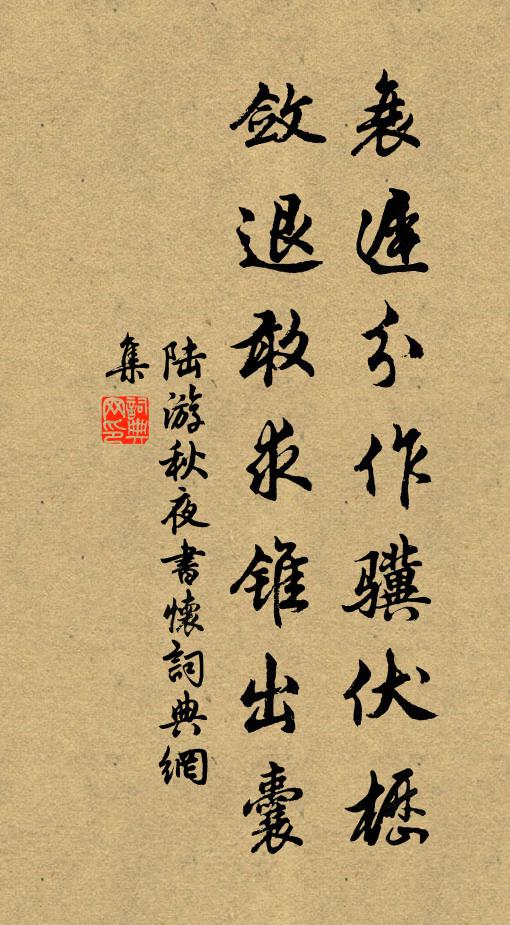 衰遲分作驥伏櫪
斂退敢求錐出囊
陆游秋夜書懷詞典網
集
詞典
网印